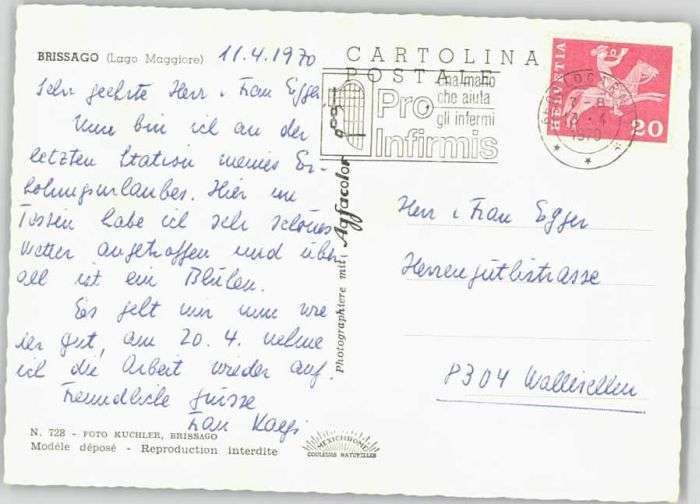 BRISSAGO (Lago Maggiore) 11.4.1970
Sehr geehrte Herr + Frau Egger
Nun bin ich an der
letzten Station meines Er-
holungsurlaubes. Hier im
Tessin habe ich sehr schönes
Wetter angetroffen und über-
all ist ein Blühen.
Es geht mir nun wie-
der gut, am 20.4. nehme
ich die Arbeit wieder auf.
Freundliche Grüsse
Frau
N. 728 - FOTO KUCHLER, BRISSAGO
Modéle déposé - Reproduction interdite
MEXICHROME
COULEURS NATURELLES
Photographiere mit: Agfacolor
CARTOLINA
POSTALE
Pro
Infirmis
una mano
che aiuta
gli infermi
HELVETIA
20
1970
Herr + Frau Egger
Herrengütlistrasse
8304 Wallisellen